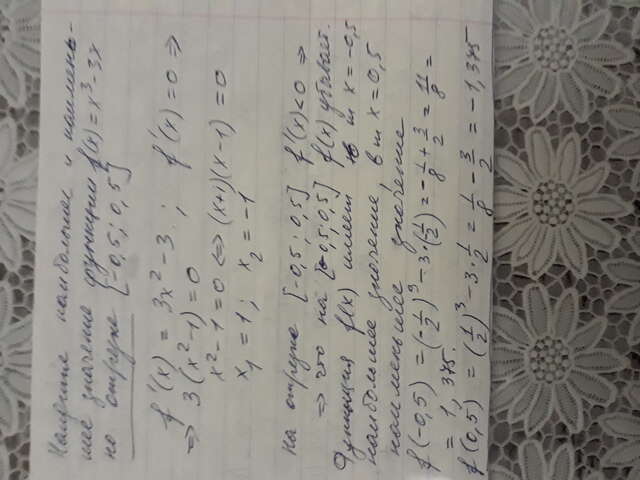 Найдите наибольшее и наимень-
шее значение функции f(x) = x³ - 3x
на отрезке [-0,5; 0,5]
f'(x) = 3x² - 3. ; f'(x) = 0 ⇒
⇒ 3(x² - 1) = 0
x² - 1 = 0 ⇔ (x+1)(x-1) = 0
x₁ = 1; x₂ = -1
На отрезке [-0,5; 0,5] f'(x) < 0 ⇒
⇒ что на [-0,5; 0,5] f(x) убывает.
Функция f(x) имеет в т x = -0,5
наибольшее значение, в т x = 0,5
наименьшее значение
f(-0,5) = (-1/2)³ - 3·(-1/2) = -1/8 + 3/2 = 11/8 =
= 1,375.
f(0,5) = (1/2)³ - 3·1/2 = 1/8 - 3/2 = -1,375